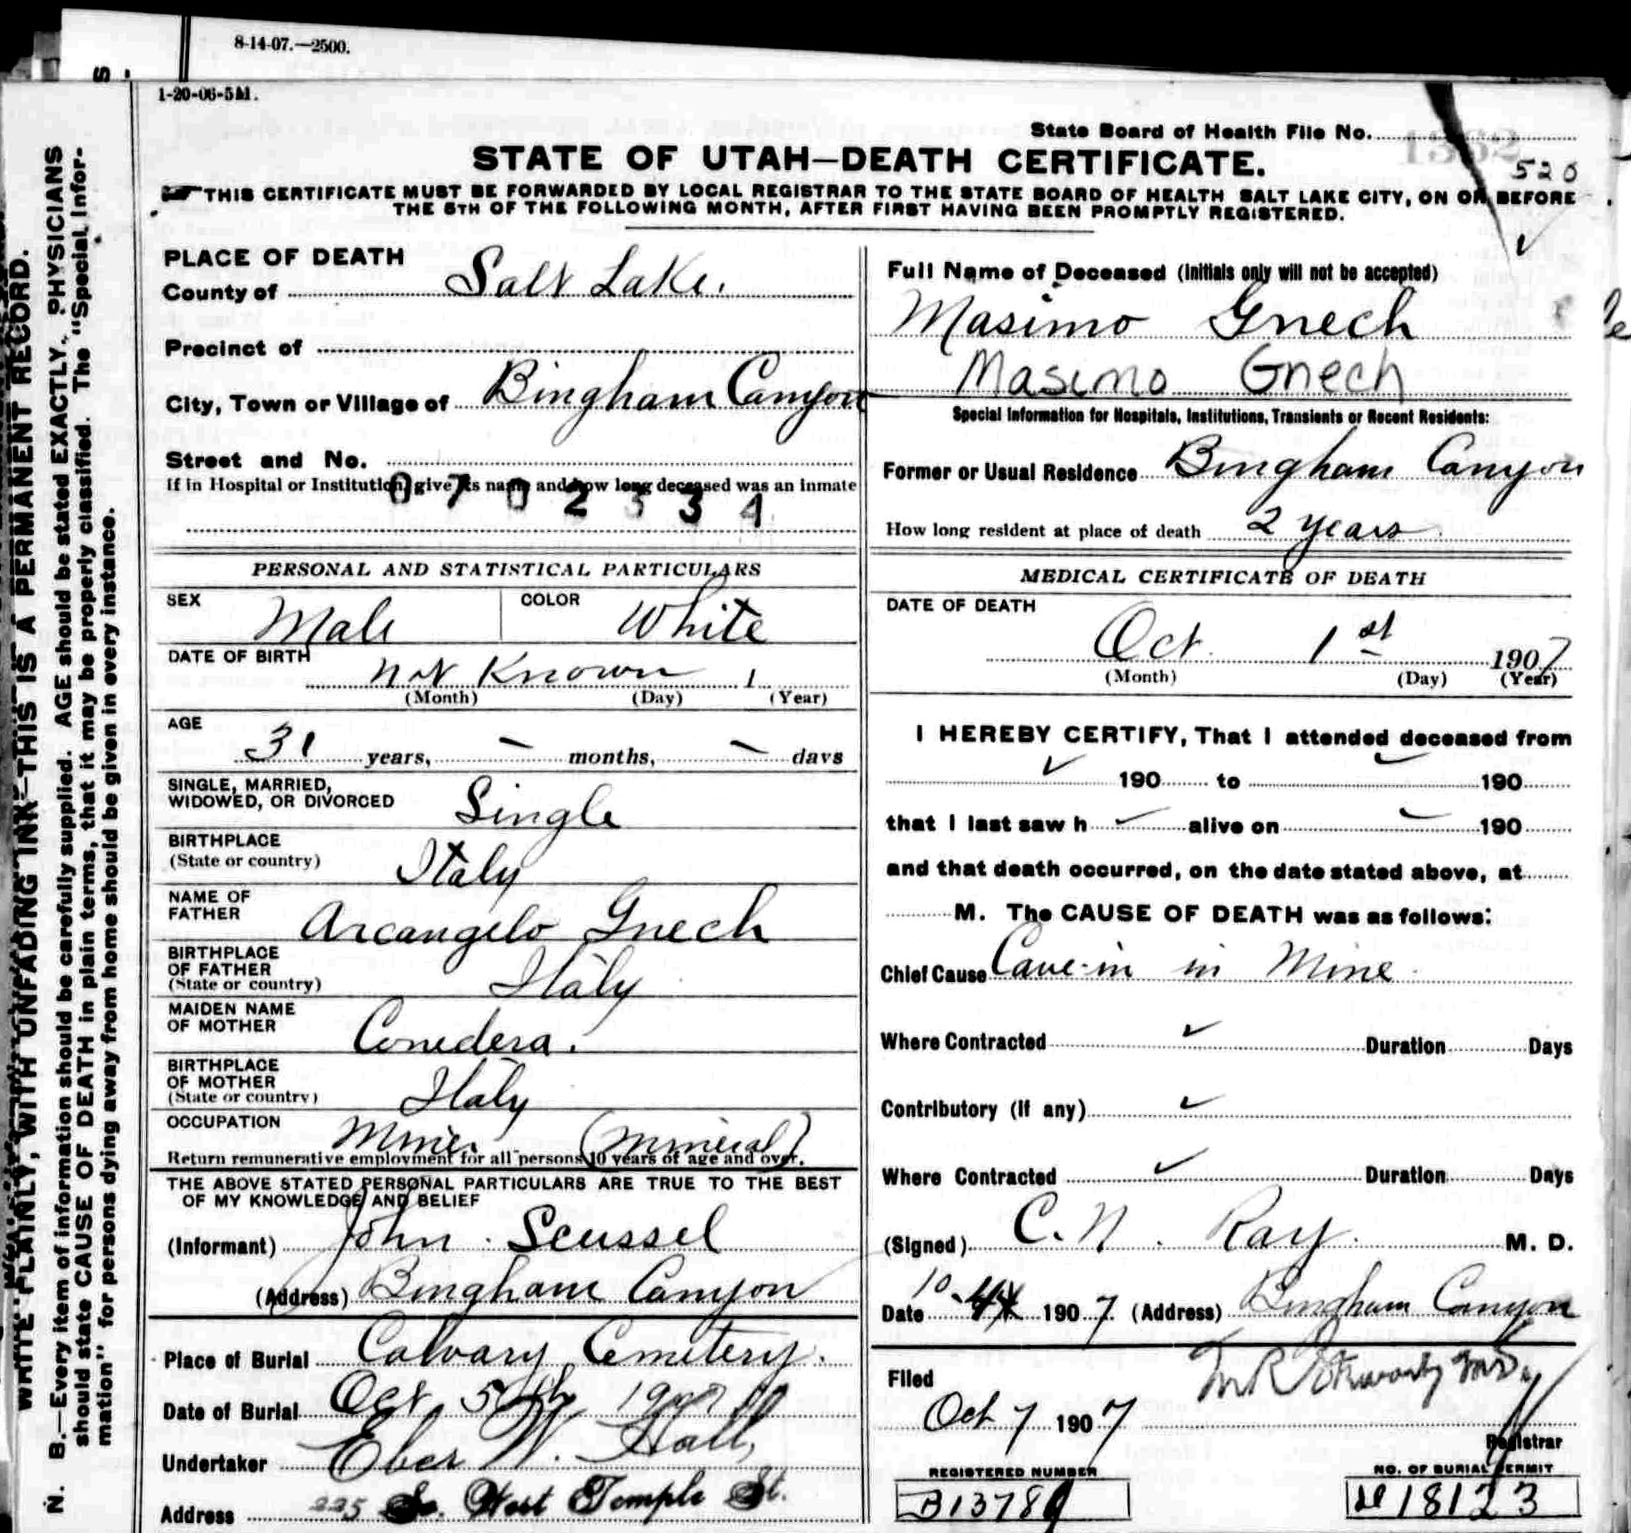 8-14-07.—2500.
1-20-06-5M.
State Board of Health File No.
526
STATE OF UTAH—DEATH CERTIFICATE.
THIS CERTIFICATE MUST BE FORWARDED BY LOCAL REGISTRAR TO THE STATE BOARD OF HEALTH SALT LAKE CITY, ON OR BEFORE
THE 5TH OF THE FOLLOWING MONTH, AFTER FIRST HAVING BEEN PROMPTLY REGISTERED.
WRITE PLAINLY, WITH UNFADING INK—THIS IS A PERMANENT RECORD.
N. B.—Every item of information should be carefully supplied. AGE should be stated EXACTLY. PHYSICIANS
should state CAUSE OF DEATH in plain terms, that it may be properly classified. The "Special Infor-
mation" for persons dying away from home should be given in every instance.
PLACE OF DEATH
County of Salt Lake.
Precinct of
City, Town or Village of Bingham Canyon
Street and No.
If in Hospital or Institution, give its name and how long deceased was an inmate
0702334
PERSONAL AND STATISTICAL PARTICULARS
SEX Male COLOR White
DATE OF BIRTH Not Known 1
(Month) (Day) (Year)
AGE
31 years, - months, - days
SINGLE, MARRIED,
WIDOWED, OR DIVORCED Single
BIRTHPLACE
(State or country) Italy
NAME OF
FATHER Arcangelo Gnech
BIRTHPLACE
OF FATHER
(State or country) Italy
MAIDEN NAME
OF MOTHER Conedera.
BIRTHPLACE
OF MOTHER
(State or country) Italy
OCCUPATION Miner (Mineral)
Return remunerative employment for all persons 10 years of age and over.
THE ABOVE STATED PERSONAL PARTICULARS ARE TRUE TO THE BEST
OF MY KNOWLEDGE AND BELIEF
(Informant) John Scussel
(Address) Bingham Canyon
Place of Burial Calvary Cemetery.
Date of Burial Oct 5th 1907
Undertaker Eber W. Hall,
Address 225 So. West Temple St.
Full Name of Deceased (Initials only will not be accepted)
Masimo Gnech
Masimo Gnech
Special Information for Hospitals, Institutions, Transients or Recent Residents:
Former or Usual Residence Bingham Canyon
How long resident at place of death 2 years
MEDICAL CERTIFICATE OF DEATH
DATE OF DEATH
Oct. 1st 1907
(Month) (Day) (Year)
I HEREBY CERTIFY, That I attended deceased from
190 to 190
that I last saw h alive on 190
and that death occurred, on the date stated above, at
M. The CAUSE OF DEATH was as follows:
Chief Cause Cave-in in Mine.
Where Contracted Duration Days
Contributory (If any)
Where Contracted Duration Days
(Signed) C. N. Ray M. D.
Date 10 1907. (Address) Bingham Canyon
Filed
Oct 7 1907
Registrar
REGISTERED NUMBER
B13789
NO. OF BURIAL PERMIT
18123